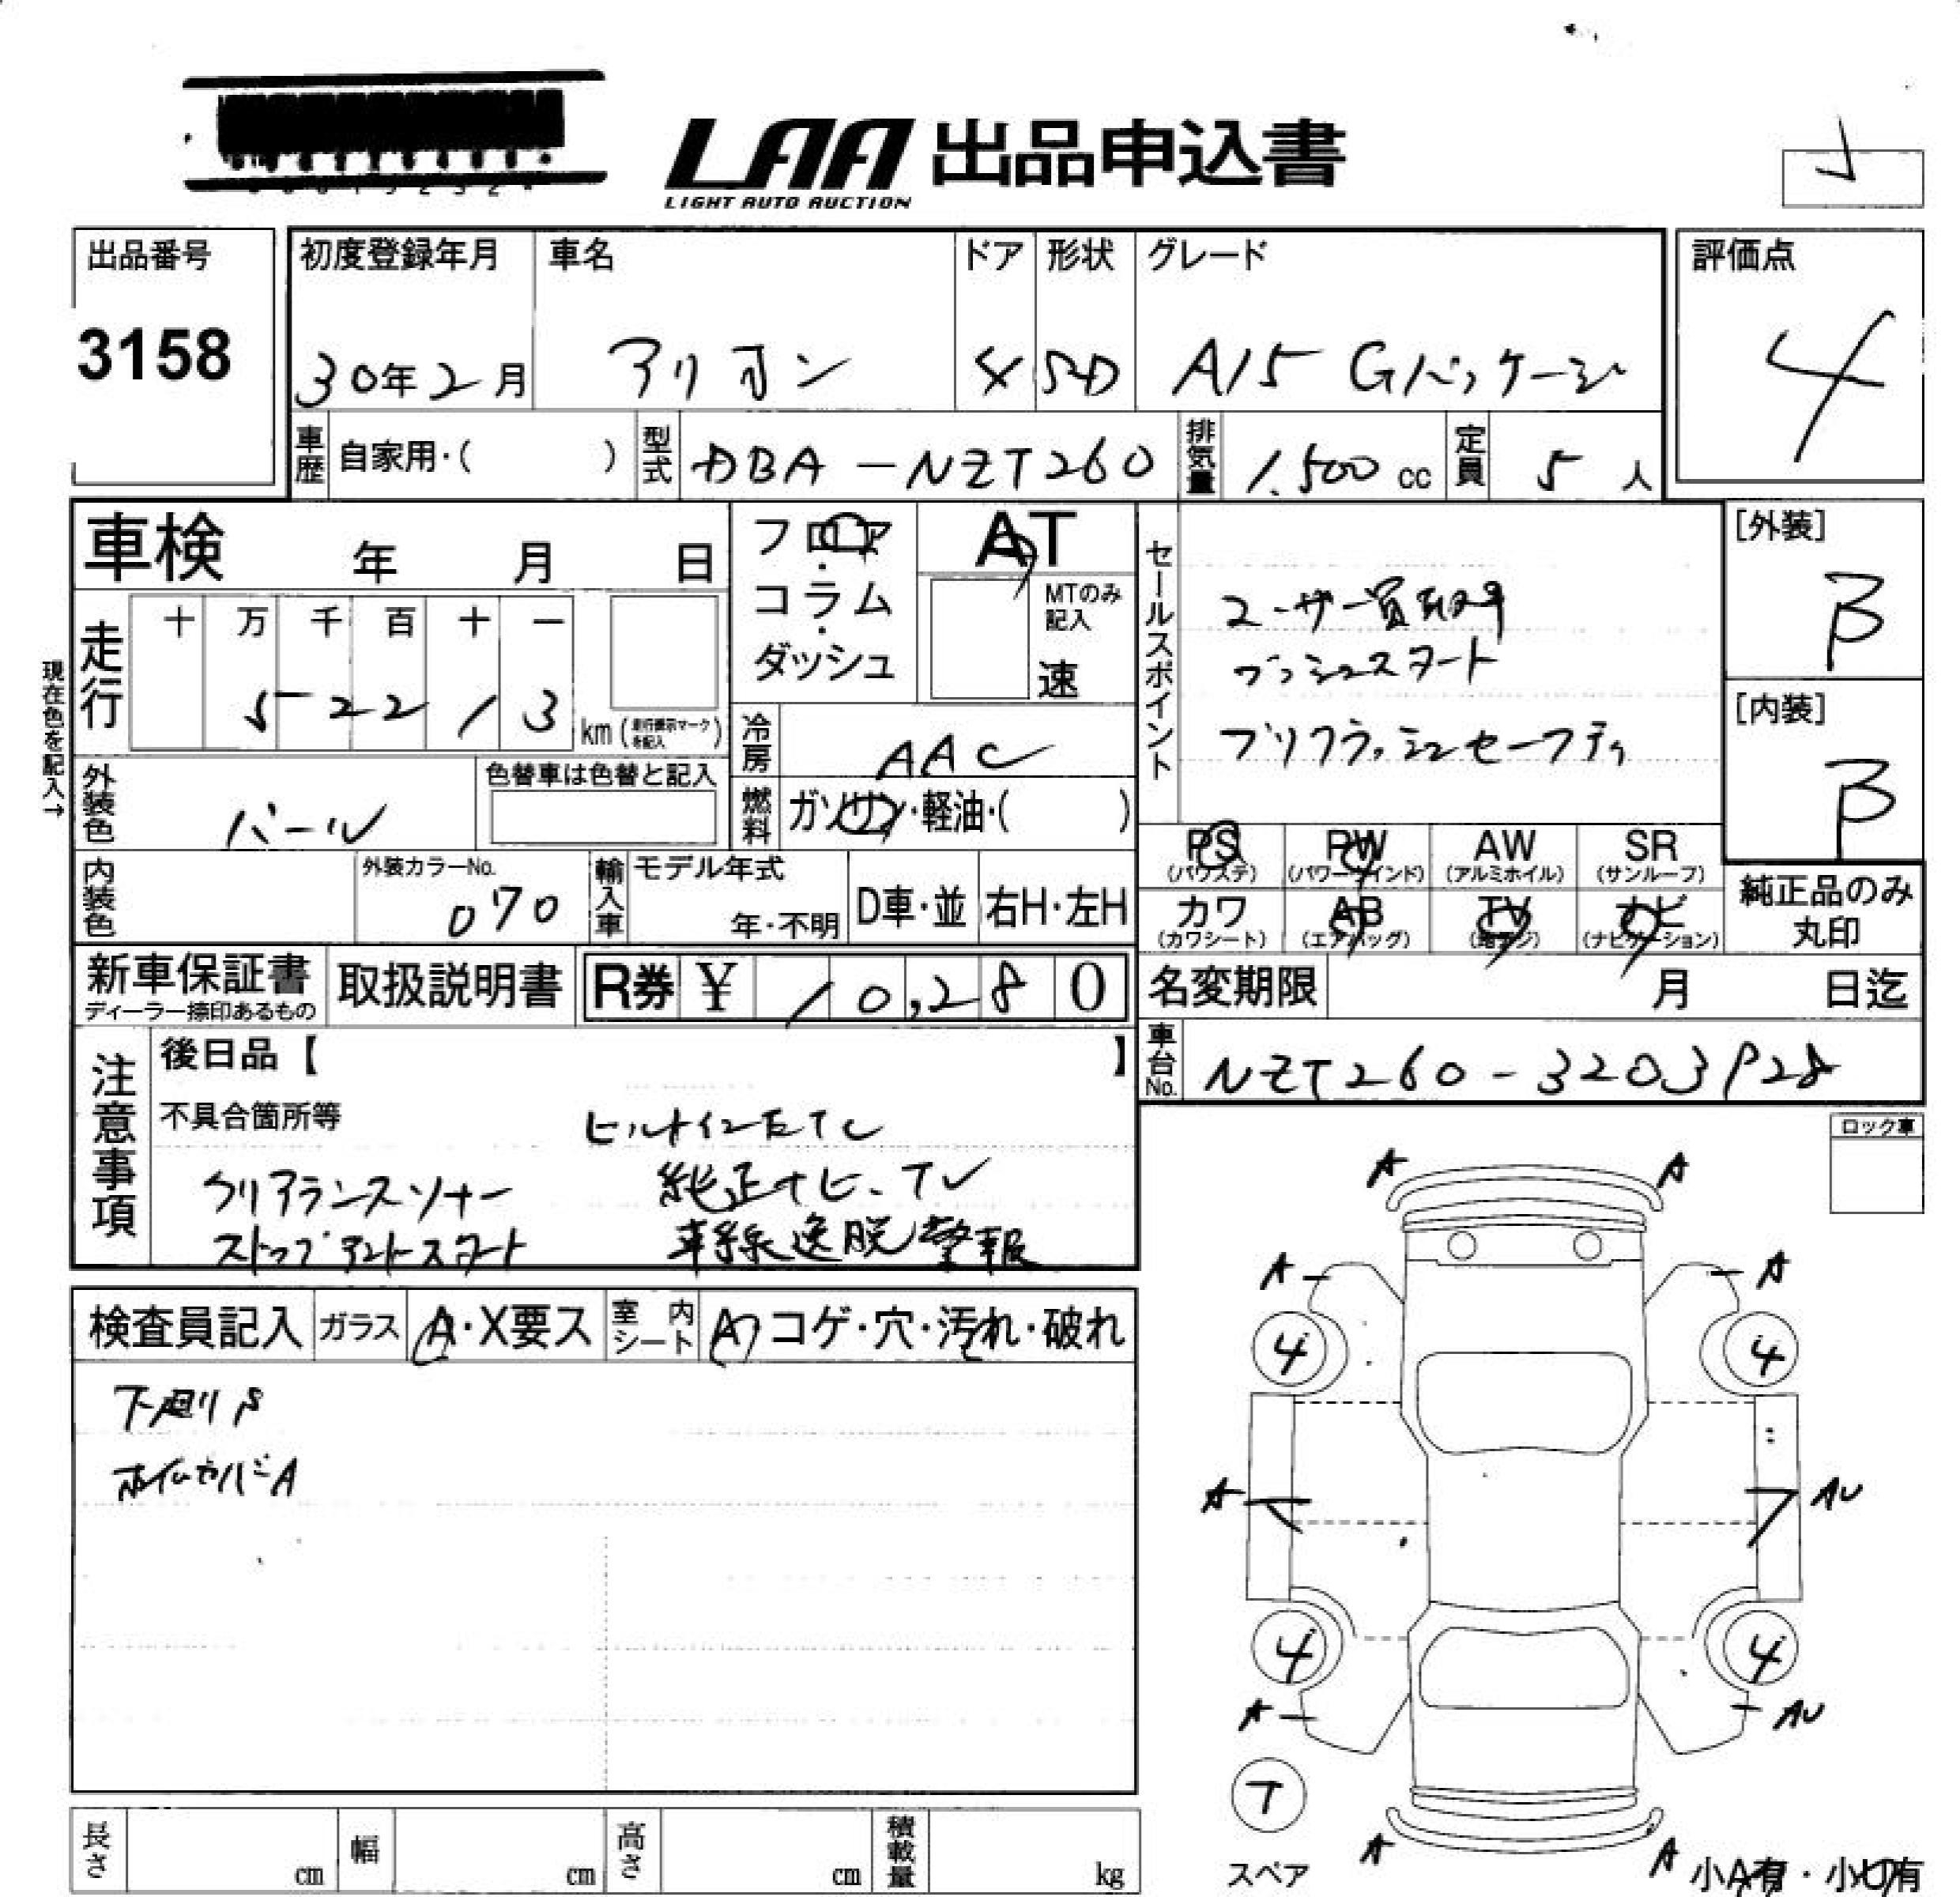 LAA 出品申込書
LIGHT AUTO AUCTION
出品番号
3158
初度登録年月 車名 ドア 形状 グレード
30年2月 アリオン 4 SD A15 Gパッケージ
評価点
4
車歴 自家用・( ) 型式 DBA-NZT260 排気量 1,500cc 定員 5人
車検 年 月 日
フロア・コラム・ダッシュ
AT
MTのみ記入
速
セールスポイント
ユーザー買取車
プッシュスタート
プリクラッシュセーフティ
[外装]
B
[内装]
B
現在色を記入→
走行 十 万 千 百 十 一
52213 km (走行表示マークを記入)
冷房 AAC
外装色 パール 色替車は色替と記入
燃料 ガソリン・軽油・( )
内装色 外装カラーNo. 070
輸入車 モデル年式 年・不明 D車・並 右H・左H
PS (パワステ) PW (パワーウインド) AW (アルミホイル) SR (サンルーフ)
カワ (カワシート) AB (エアバッグ) TV (地デジ) ナビ (ナビゲーション)
純正品のみ丸印
新車保証書 ディーラー捺印あるもの 取扱説明書 R券 ¥ 10,280
名変期限 月 日迄
車台No. NZT260-
注意事項
後日品【 】
不具合箇所等
ビルトインETC
クリアランスソナー 純正ナビ、TV
ストップアンドスタート 車線逸脱警報
ロック車
検査員記入 ガラス A・X要ス 室内シート A・コゲ・穴・汚れ・破れ
下廻りS
ホイルカバーA
A A
A A
4 4
A AU
4 4
A AU
T
スペア
A A
小A有・小U有
長さ cm 幅 cm 高さ cm 積載量 kg